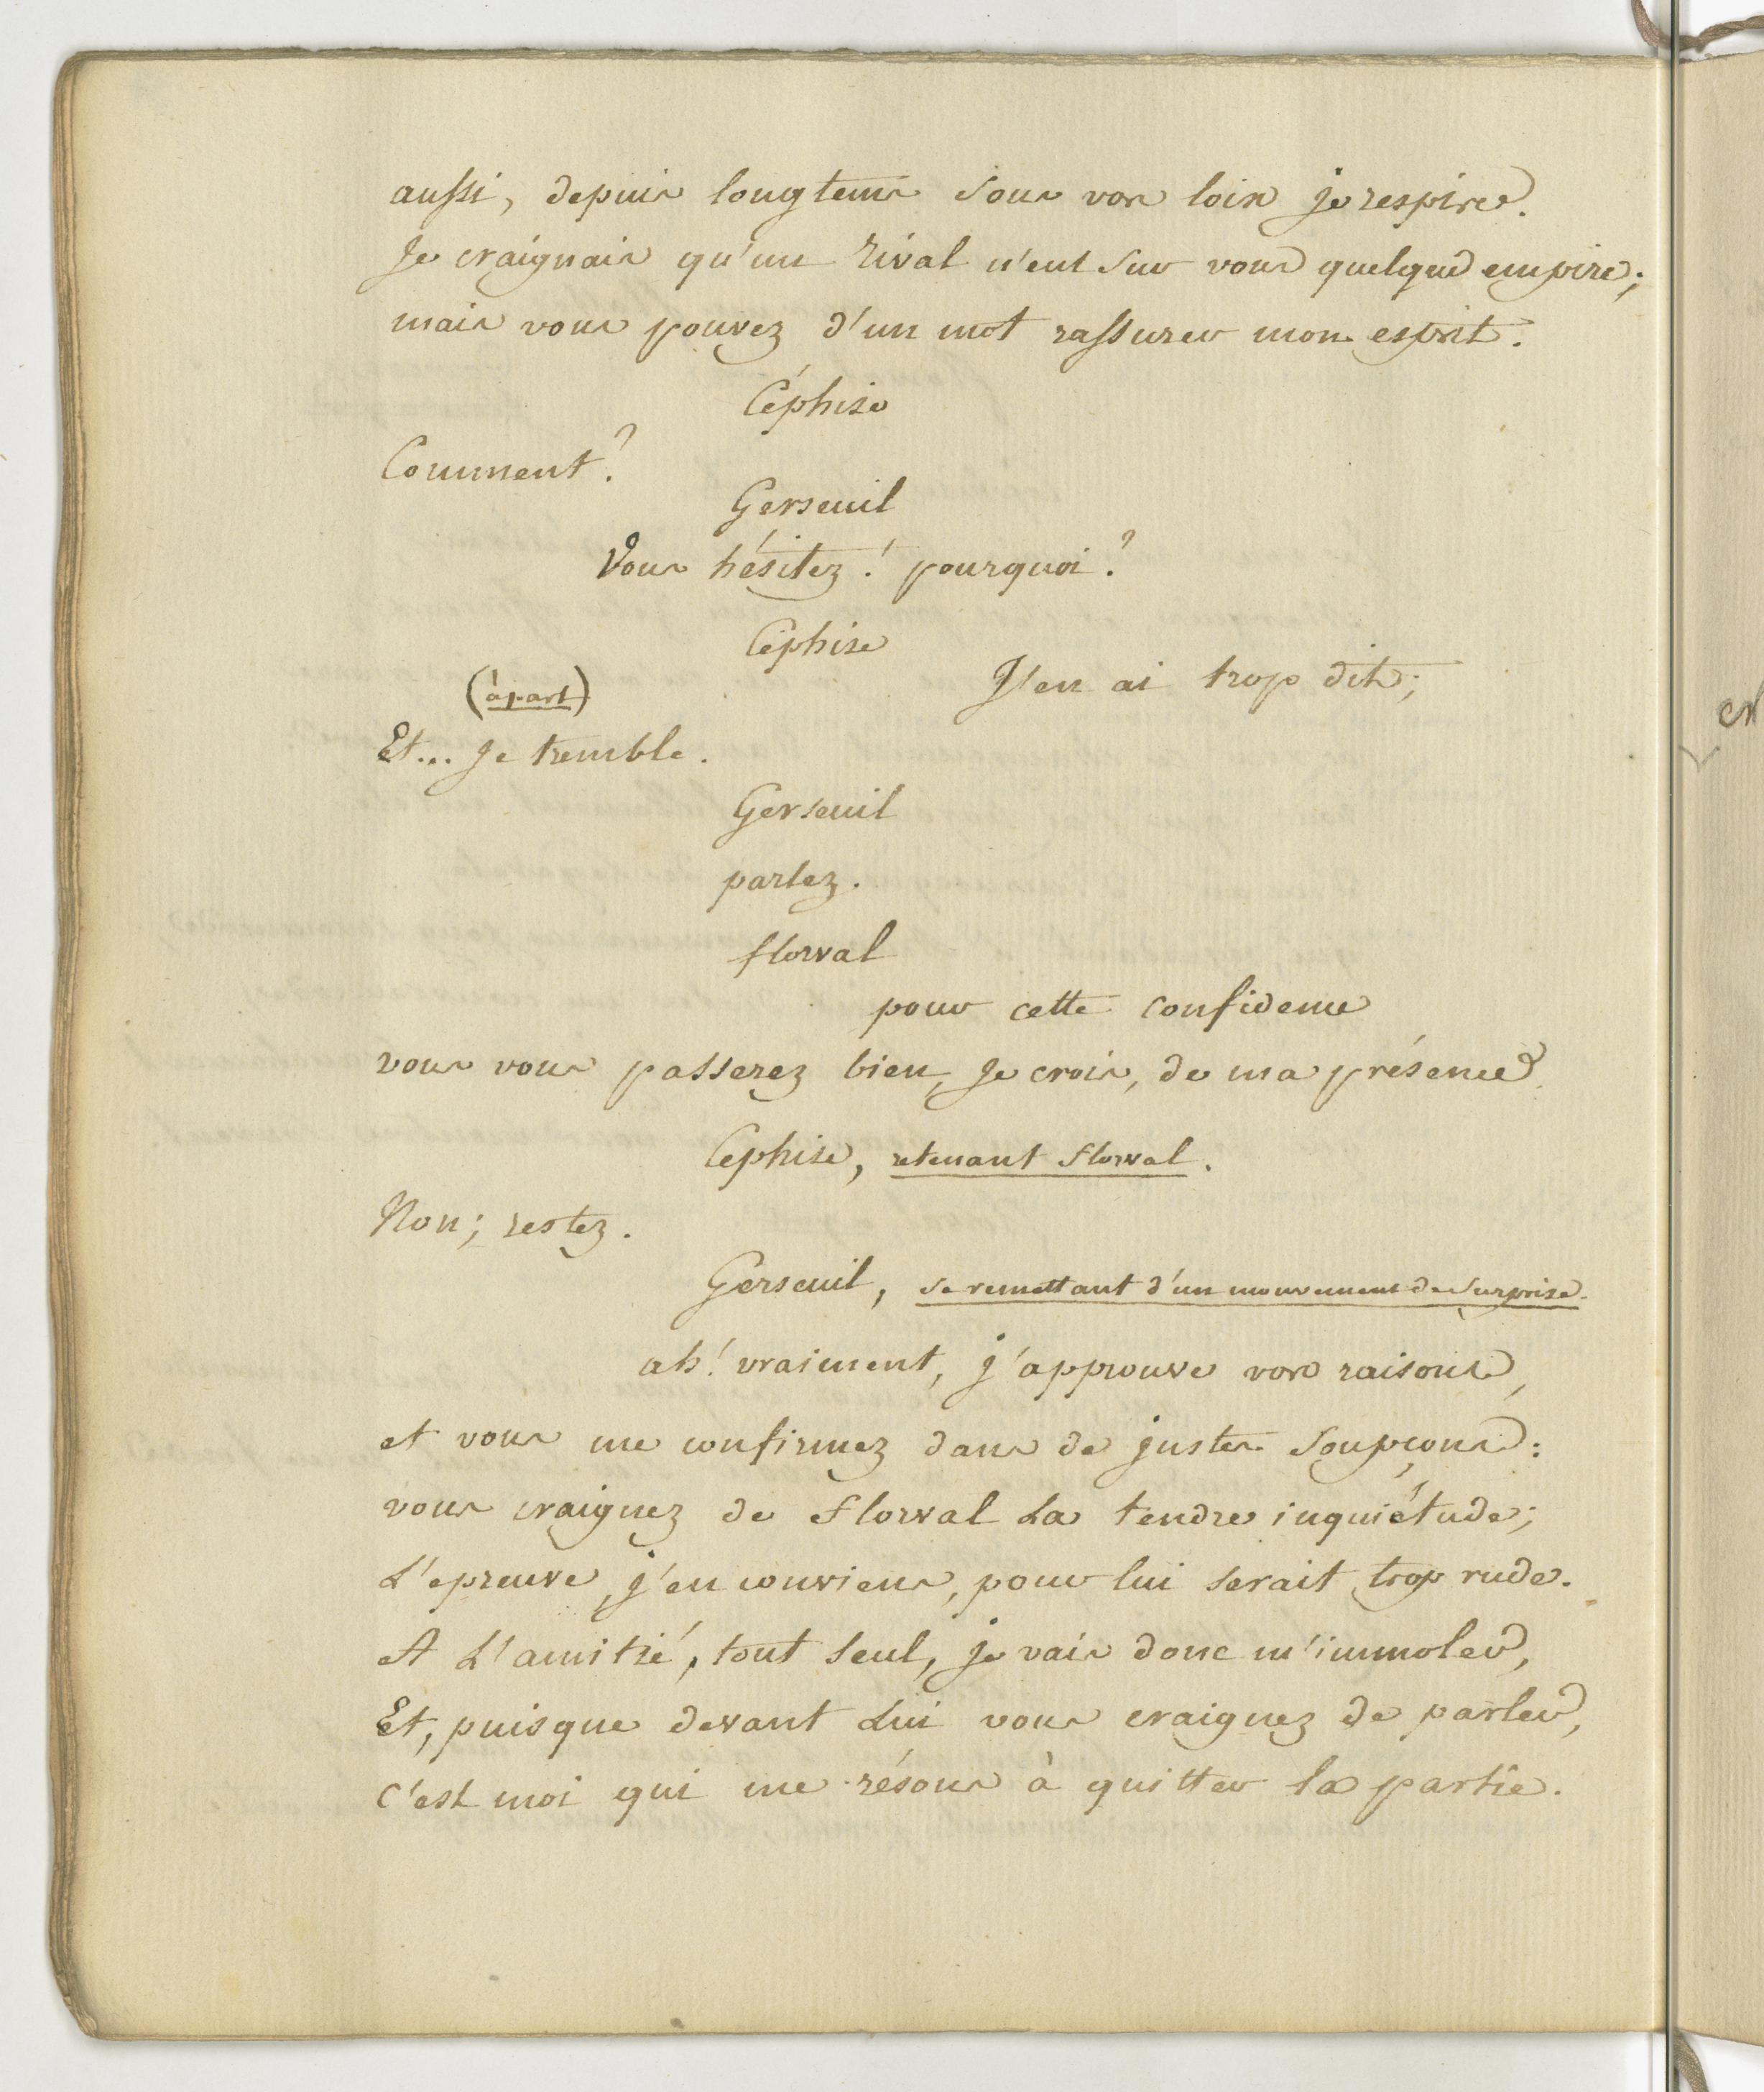 aussi, depuis longtems sous vos loix je respire.
Je craignais qu'un rival n'eut sur vous quelque empire;
mais vous pouvez d'un mot rassurer mon esprit.
Céphise
Comment?
Gerseuil
Vous hésitez! pourquoi?
Céphise
J'en ai trop dit;
(à part)
Et... Je tremble.
Gerseuil
parlez.
florval
pour cette confidence
vous vous passerez bien, Je crois, de ma présence.
Cephise, retenant florval.
Non; restez.
Gerseuil, se remettant d'un mouvement de surprise.
ah! vraiment, j'approuve vos raisons,
et vous me confirmez dans de justes soupçons:
vous craignez de florval La tendre inquiétude;
L'epreuve, j'en conviens, pour lui serait trop rude.
A L'amitié, tout seul, je vais donc m'immoler,
Et, puisque devant Lui vous craignez de parler,
C'est moi qui me résous à quitter la partie.